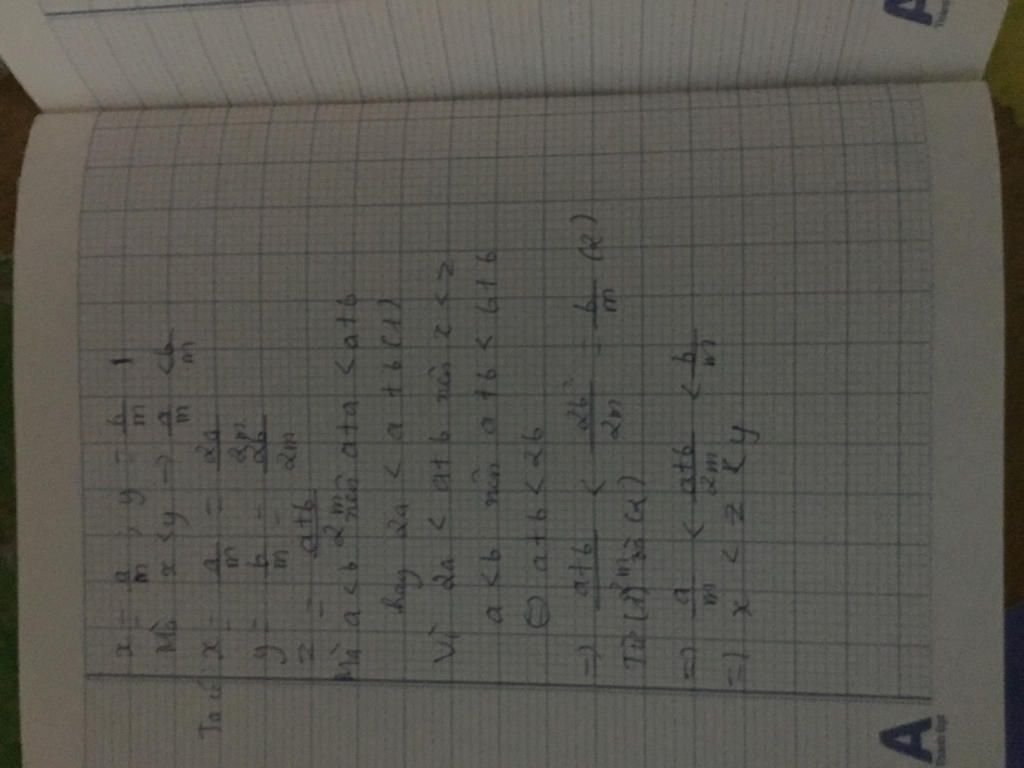 x = a/m ; y = b/m
Mà x < y → a/m < b/m
Ta có x = a/m = 2a/2m
y = b/m = 2b/2m
z = a+b/2m
Mà a < b nên a+a < a+b
hay 2a < a+b (1)
Vì 2a < a+b nên x < z
a < b nên a+b < b+b
⇔ a+b < 2b
=> a+b/2m < 2b/2m = b/m (2)
Từ (1) và (2)
=> a/m < a+b/2m < b/m
=> x < z < y
A
A